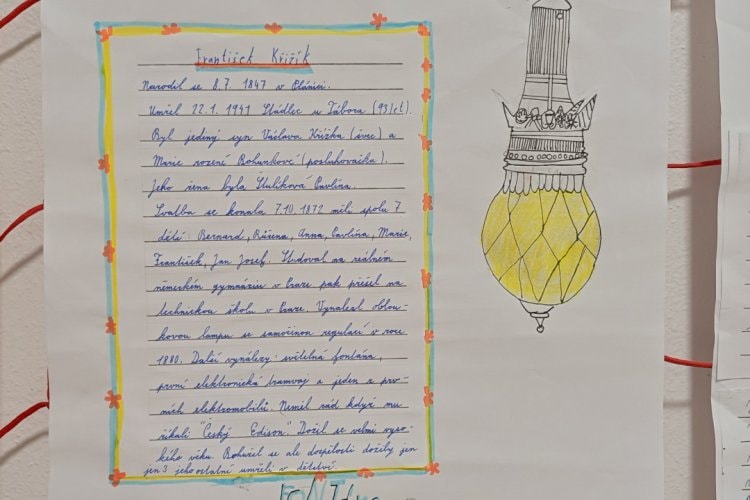 František Křižík
Narodil se 8.7. 1847 v Plánici.
Umřel 22.1. 1941 Stádlec u Tábora (93 let).
Byl jediný syn Václava Křižíka (švec) a
Marie rozené Bohunkové (posluhovačka).
Jeho žena byla Štulíková Pavlína.
Svatba se konala 7.10. 1872 měli spolu 7
dětí: Bernard, Růžena, Anna, Pavlína, Marie,
František, Jan Josef. Studoval na reálném
německém gymnaziu v Praze pak přešel na
technickou školu v Praze. Vynalezl oblou-
kovou lampu se samočinou regulací v roce
1880. Další vynálezy: světelná fontána,
první elektronická tramvaj a jeden z prv-
ních elektromobilů. Neměl rád když mu
říkali "Český Edison". Dožil se velmi vyso-
kého věku. Bohužel se ale dospělosti dožily jen
jen 3 jeho ostatní umřeli v dětství.